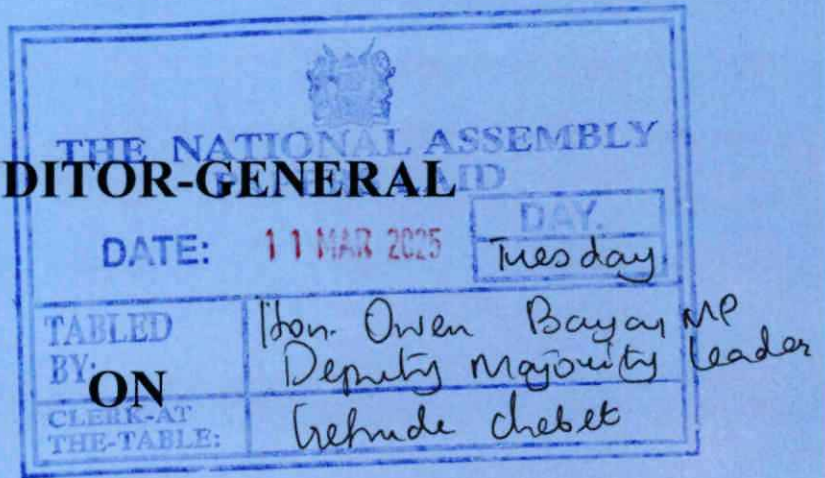 THE NATIONAL ASSEMBLY
DITOR-GENERAL
DATE: 11 MAR 2025
DAY.
Tuesday
TABLED BY:
Hon. Owen Baya, MP
Deputy Majority Leader
ON
CLERK-AT THE-TABLE:
Gertrude Chebet